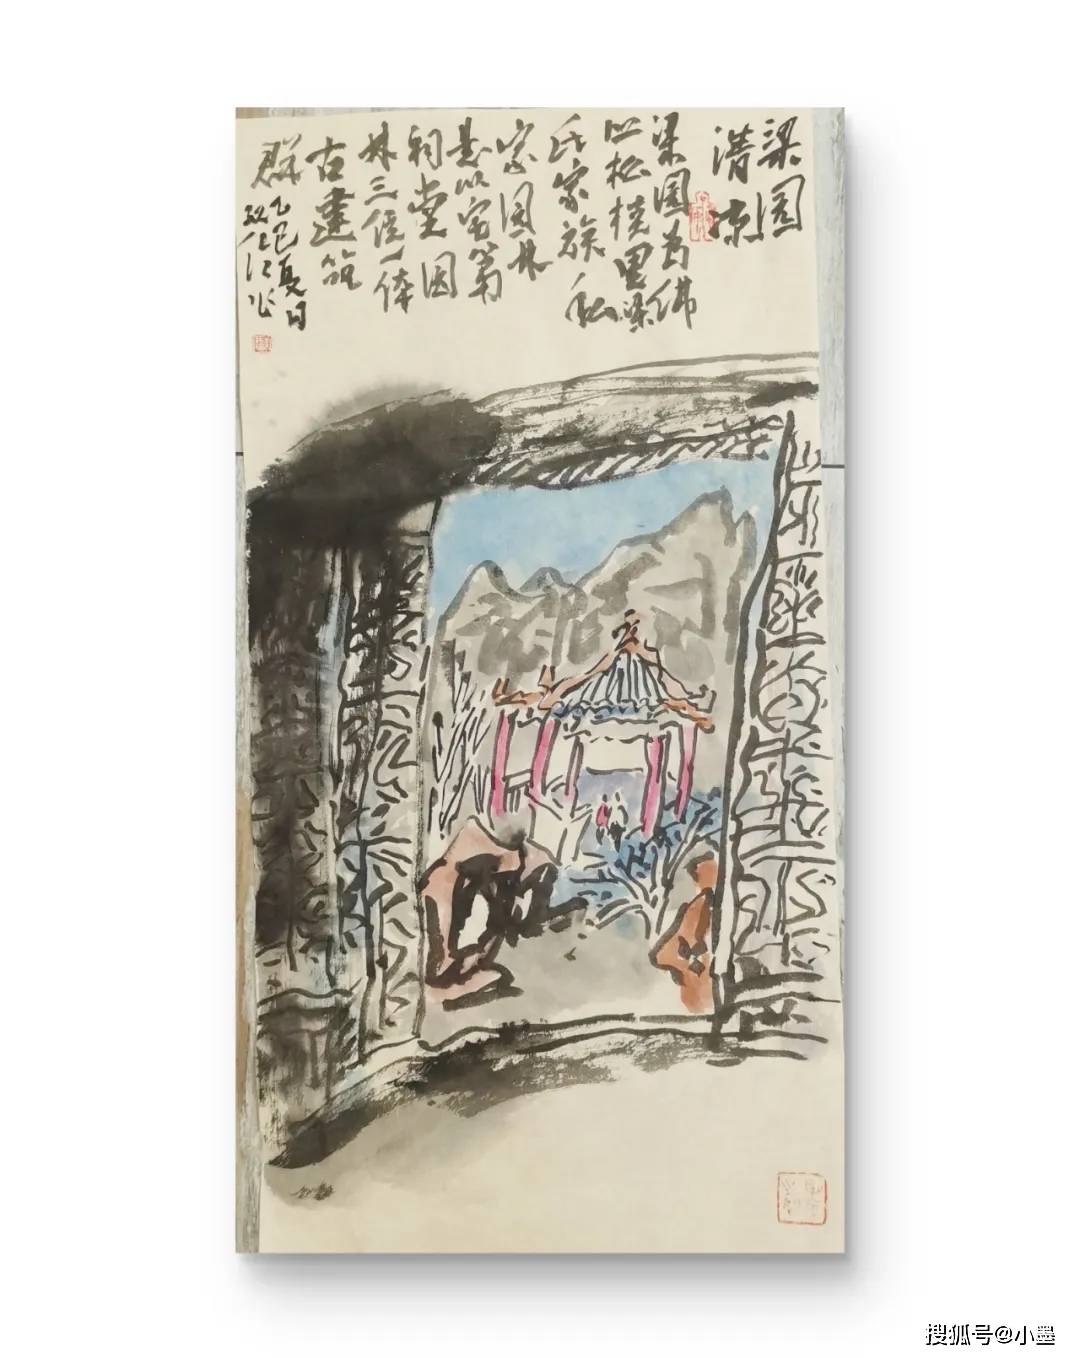 梁园
清凉
梁园为佛
山松桂里梁
氏家族私
家园林
是以宅第
祠堂园
林三位一体
古建筑
群
乙巳夏日
作
搜狐号@小墨